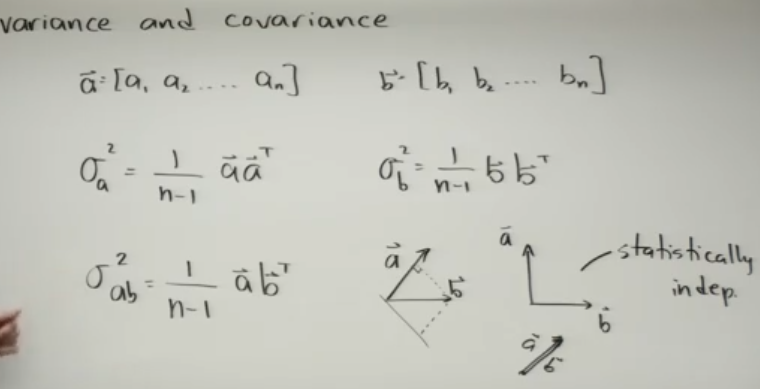 variance and covariance
a⃗=[a₁ a₂ .... aₙ] b⃗=[b₁ b₂ .... bₙ]
σₐ² = 1/(n-1) a⃗a⃗ᵀ σ_b² = 1/(n-1) b⃗b⃗ᵀ
σ_ab² = 1/(n-1) a⃗b⃗ᵀ
a⃗ b⃗
a⃗ b⃗
statistically
indep.
a⃗ b⃗